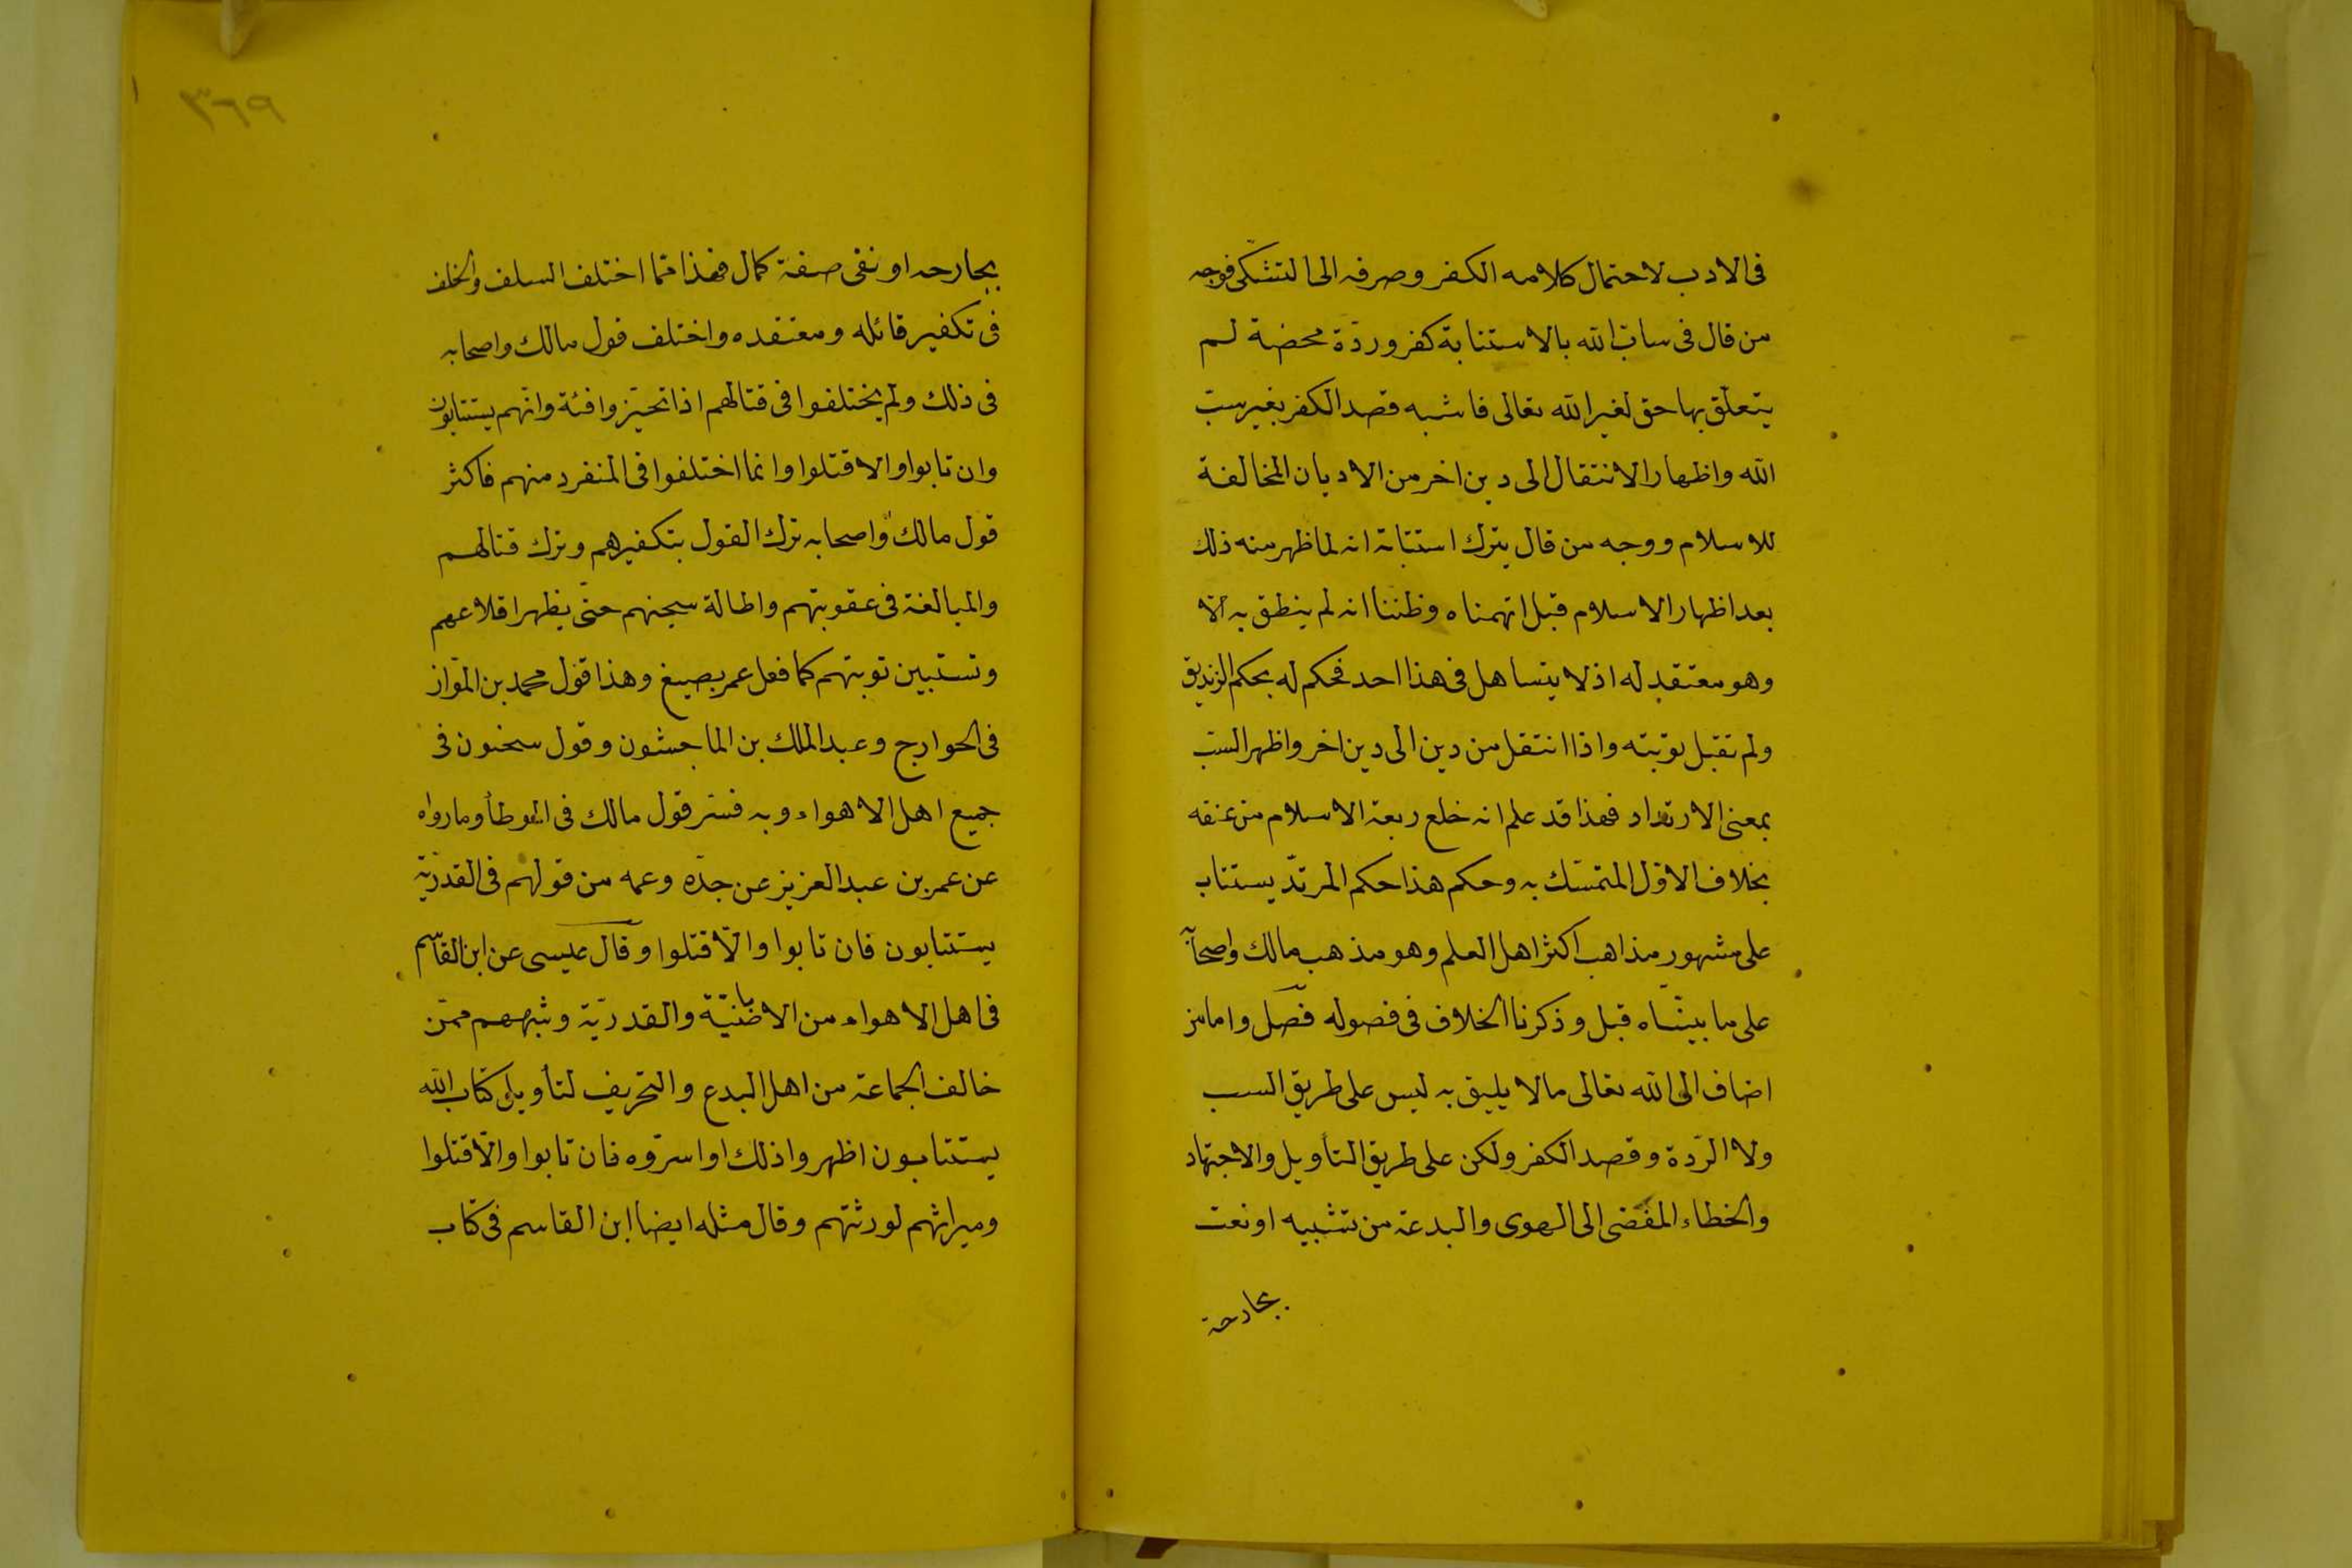 فى الادب لاحتمال كلامه الكفر وصرفه الى التشكى فوجه
من قال فى سابّ الله بالاستتابة كفر وردّة محضة لم
يتعلّق بها حق لغير الله تعالى فاشبه قصد الكفر بغير سبّ
الله واظهار الانتقال الى دين اخر من الاديان المخالفة
للاسلام ووجه من قال بترك استتابته انه لما ظهر منه ذلك
بعد اظهار الاسلام قبل اتهمناه وظننا انه لم ينطق به الّا
وهو معتقد له اذ لا يتساهل فى هذا احد فحكم له بحكم الزنديق
ولم تقبل توبته واذا انتقل من دين الى دين اخر واظهر السبّ
بمعنى الارتداد فهذا قد علم انه خلع ربعة الاسلام من عنقه
بخلاف الاوّل المتمسّك به وحكم هذا حكم المرتدّ يستتاب
على مشهور مذاهب اكثر اهل العلم وهو مذهب مالك واصحابه
على ما بينّاه قبل وذكرنا الخلاف فى فصوله فصل واما من
اضاف الى الله تعالى مالا يليق به ليس على طريق السب
ولا الردّة وقصد الكفر ولكن على طريق التأويل والاجتهاد
والخطاء المفضى الى الهوى والبدعة من تشبيه او نعت
بجارحة
٣٦٩
بجارحة او نفى صفة كمال فهذا ممّا اختلف السلف والخلف
فى تكفير قائله ومعتقده واختلف قول مالك واصحابه
فى ذلك ولم يختلفوا فى قتالهم اذا تحيّزوا فئة وانّهم يستتابون
وان تابوا والا قتلوا وانما اختلفوا فى المنفرد منهم فاكثر
قول مالك واصحابه ترك القول بتكفيرهم وترك قتالهم
والمبالغة فى عقوبتهم واطالة سجنهم حتّى يظهر اقلاعهم
وتستبين توبتهم كما فعل عمر بصبيغ وهذا قول محمد بن الموّاز
فى الخوارج وعبد الملك بن الماجشون وقول سحنون فى
جميع اهل الاهواء وبه فسّر قول مالك فى الموطأ وما رواه
عن عمر بن عبد العزيز عن جدّه وعمه من قولهم فى القدريّة
يستتابون فان تابوا والّا قتلوا وقال عيسى عن ابن القاسم
فى اهل الاهواء من الاباضيّة والقدريّة وشبههم ممّن
خالف الجماعة من اهل البدع والتحريف لتأويل كتاب الله
يستتابون اظهروا ذلك او اسرّوه فان تابوا والّا قتلوا
وميراثهم لورثتهم وقال مثله ايضا ابن القاسم فى كتاب